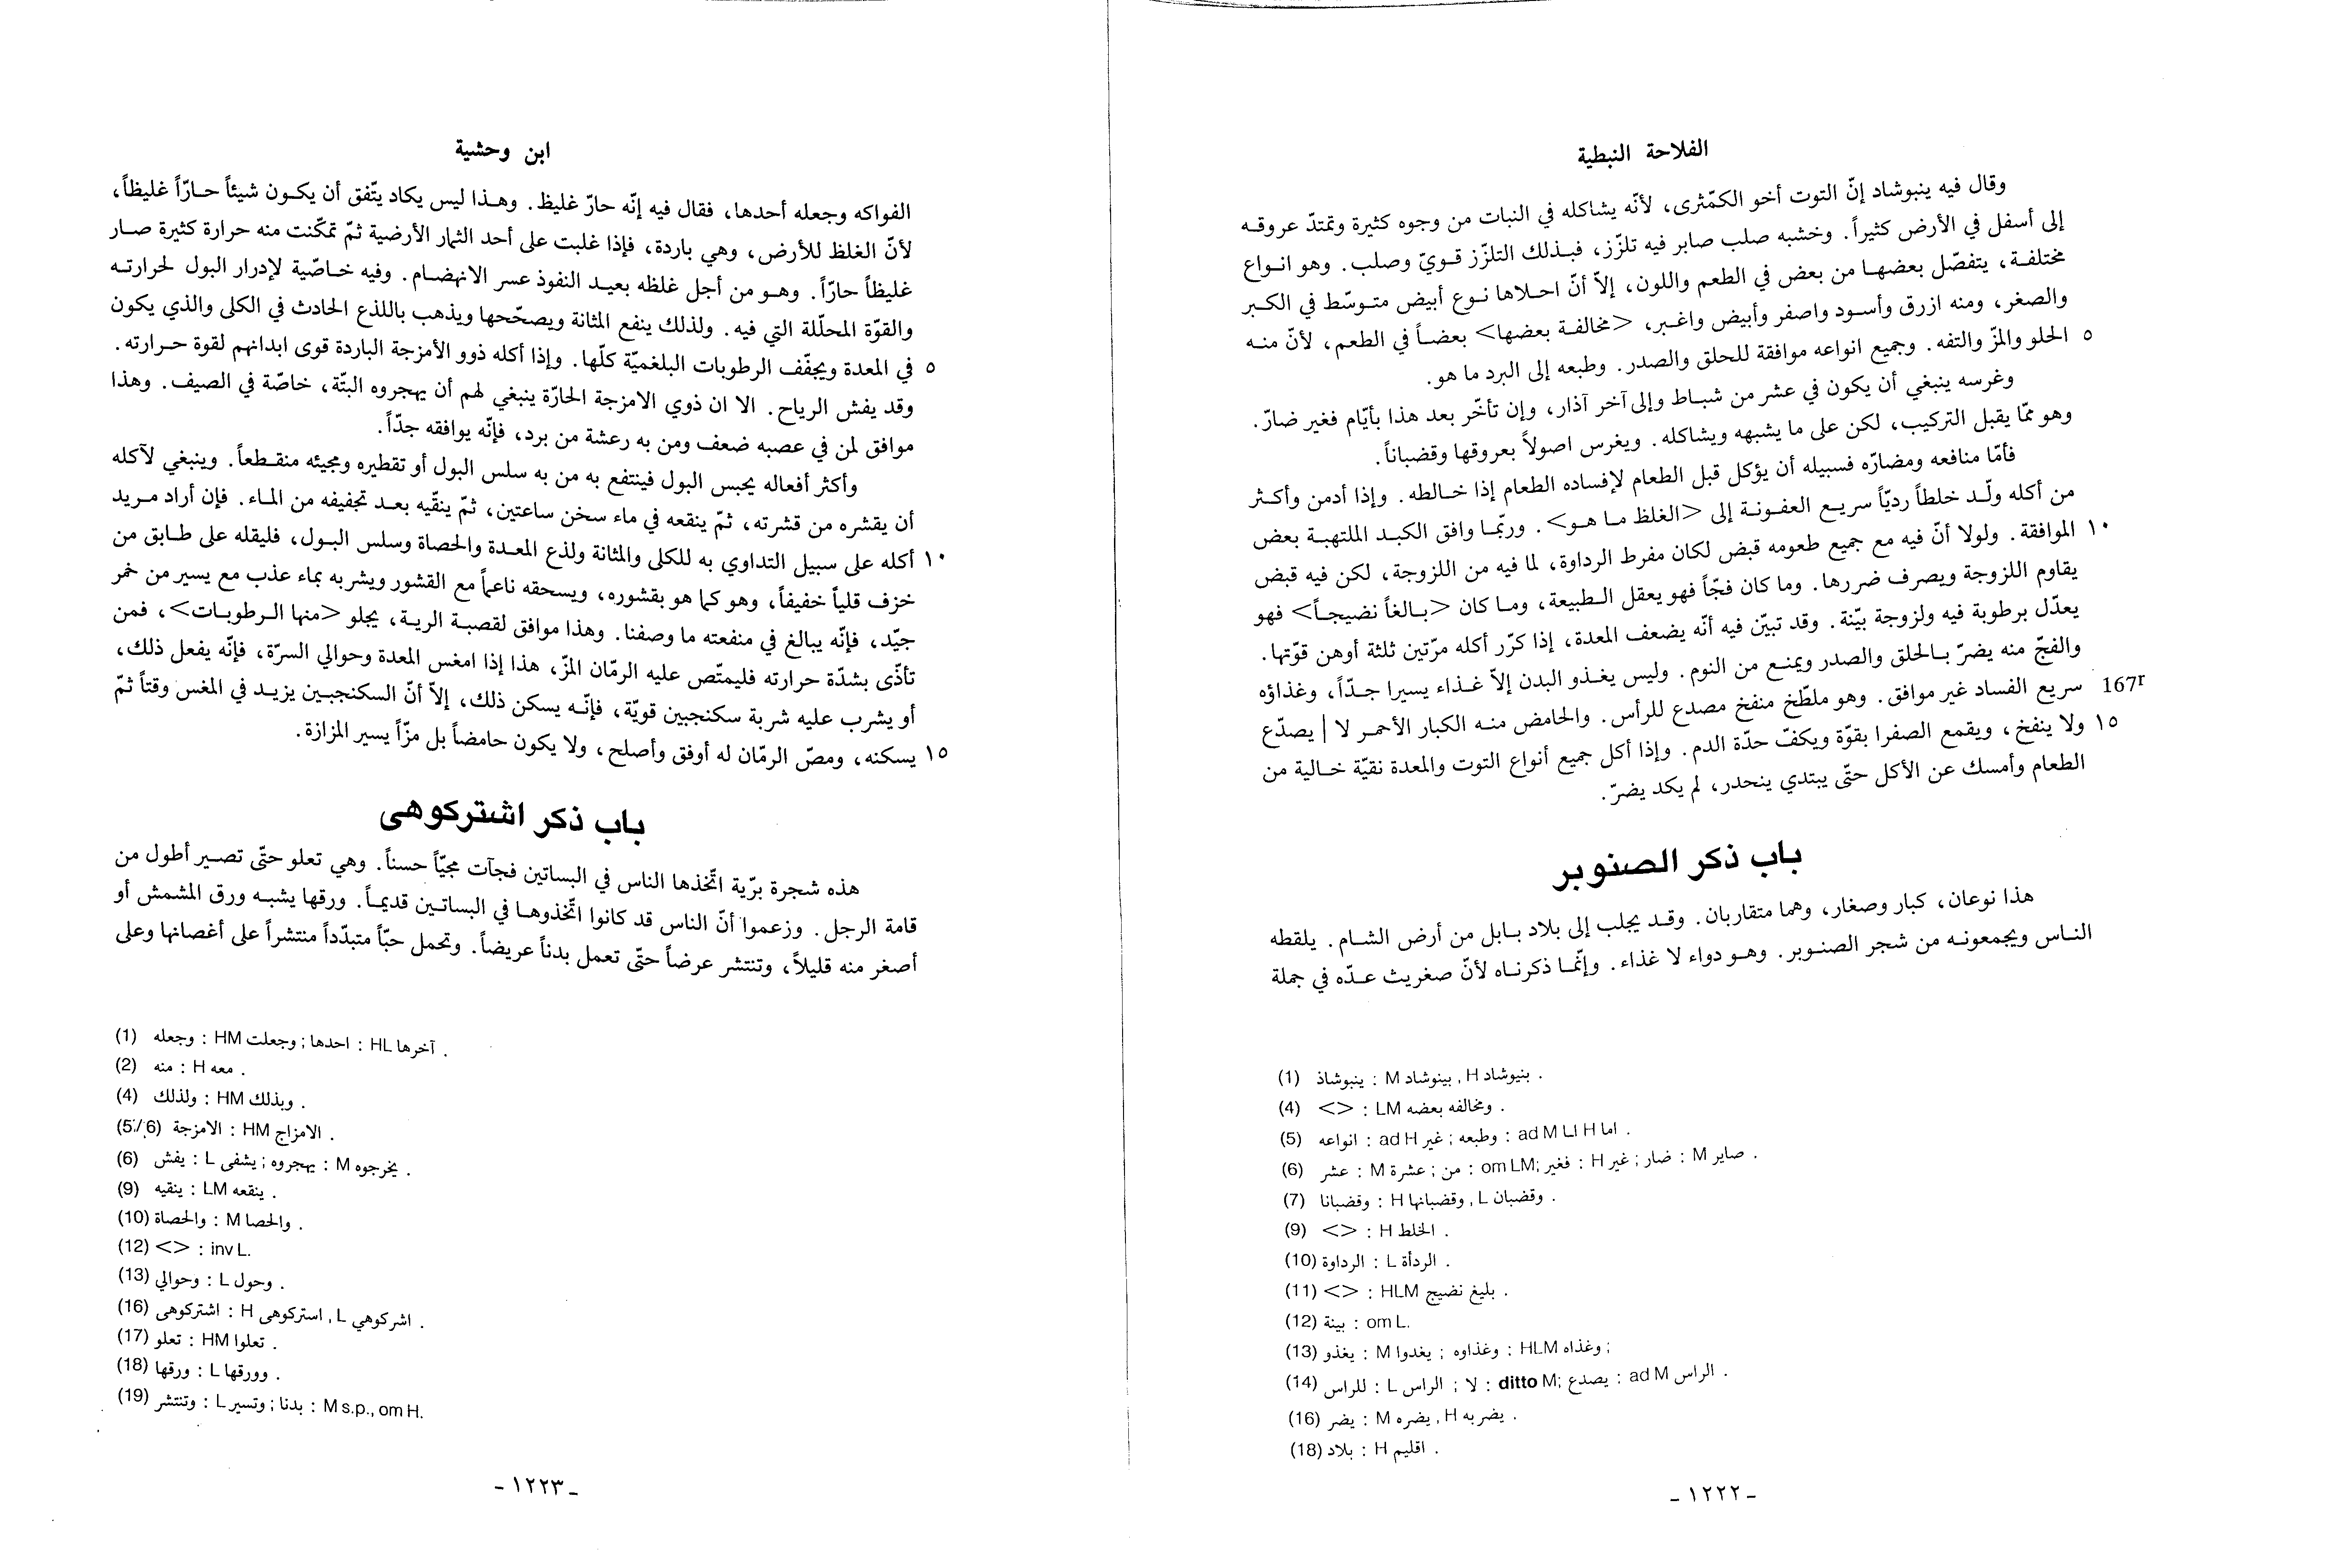 الفلاحة النبطية
وقال فيه ينبوشاد إنّ التوت أخو الكمّثرى، لأنّه يشاكله في النبات من وجوه كثيرة وتمتدّ عروقه
إلى أسفل في الأرض كثيراً. وخشبه صلب صابر فيه تلزّز، فبذلك التلزّز قويّ وصلب. وهو انواع
مختلفة، يتفصّل بعضها من بعض في الطعم واللون، إلاّ أنّ احلاها نوع أبيض متوسّط في الكبر
والصغر، ومنه ازرق وأسود واصفر وأبيض واغبر، <مخالفة بعضها> بعضاً في الطعم، لأنّ منه
٥ الحلو والمزّ والتفه. وجميع انواعه موافقة للحلق والصدر. وطبعه إلى البرد ما هو.
وغرسه ينبغي أن يكون في عشر من شباط وإلى آخر آذار، وإن تأخّر بعد هذا بأيّام فغير ضارّ.
وهو ممّا يقبل التركيب، لكن على ما يشبهه ويشاكله. ويغرس اصولاً بعروقها وقضباناً.
فأمّا منافعه ومضارّه فسبيله أن يؤكل قبل الطعام لإفساده الطعام إذا خالطه. وإذا أدمن وأكثر
من أكله ولّد خلطاً رديّاً سريع العفونة إلى <الغلظ ما هو>. وربّما وافق الكبد الملتهبة بعض
١٠ الموافقة. ولولا أنّ فيه مع جميع طعومه قبض لكان مفرط الرداوة، لما فيه من اللزوجة، لكن فيه قبض
يقاوم اللزوجة ويصرف ضررها. وما كان فجّاً فهو يعقل الطبيعة، وما كان <بالغاً نضيجاً> فهو
يعدّل برطوبة فيه ولزوجة بيّنة. وقد تبيّن فيه أنّه يضعف المعدة، إذا كرّر أكله مرّتين ثلثة أوهن قوّتها.
والفجّ منه يضرّ بالحلق والصدر ويمنع من النوم. وليس يغذو البدن إلاّ غذاء يسيرا جدّاً، وغذاؤه
167r سريع الفساد غير موافق. وهو ملطّخ منفخ مصدع للرأس. والحامض منه الكبار الأحمر لا | يصدّع
١٥ ولا ينفخ، ويقمع الصفرا بقوّة ويكفّ حدّة الدم. وإذا أكل جميع أنواع التوت والمعدة نقيّة خالية من
الطعام وأمسك عن الأكل حتّى يبتدي ينحدر، لم يكد يضرّ.
باب ذكر الصنوبر
هذا نوعان، كبار وصغار، وهما متقاربان. وقد يجلب إلى بلاد بابل من أرض الشام. يلقطه
الناس ويجمعونه من شجر الصنوبر. وهو دواء لا غذاء. وإنّما ذكرناه لأنّ صغريث عدّه في جملة
(1) ينبوشاذ : M بينوشاد , H بنيوشاد .
(4) <> : LM ومخالفه بعضه .
(5) انواعه : ad H غير ; وطبعه : ad M اما H انـا .
(6) عشر : M عشرة ; من : om LM; فغير : H غير ; ضار : M صاير .
(7) وقضبانا : H وقضبانها , L وقضبان .
(9) <> : H الخلط .
(10) الرداوة : L الردأة .
(11) <> : HLM بليغ نضيج .
(12) بينة : om L.
(13) يغذو : M يغدوا ; وغذاوه : HLM وغذاه ;
(14) للراس : L الراس ; لا : ditto M; يصدع : ad M الراس .
(16) يضر : M يضره , H يضر به .
(18) بلاد : H اقليم .
ـ ١٢٢٢ ـ
ابن وحشية
الفواكه وجعله أحدها، فقال فيه إنّه حارّ غليظ. وهذا ليس يكاد يتّفق أن يكون شيئاً حارّاً غليظاً،
لأنّ الغلظ للأرض، وهي باردة، فإذا غلبت على أحد الثمار الأرضية ثمّ تمكّنت منه حرارة كثيرة صار
غليظاً حارّاً. وهو من أجل غلظه بعيد النفوذ عسر الانهضام. وفيه خاصّية لإدرار البول لحرارته
والقوّة المحلّلة التي فيه. ولذلك ينفع المثانة ويصحّحها ويذهب باللذع الحادث في الكلى والذي يكون
٥ في المعدة ويجفّف الرطوبات البلغميّة كلّها. وإذا أكله ذوو الأمزجة الباردة قوى ابدانهم لقوة حرارته.
وقد يفش الرياح. الا ان ذوي الامزجة الحارّة ينبغي لهم أن يهجروه البتّة، خاصّة في الصيف. وهذا
موافق لمن في عصبه ضعف ومن به رعشة من برد، فإنّه يوافقه جدّاً.
وأكثر أفعاله يحبس البول فينتفع به من به سلس البول أو تقطيره ومجيئه منقطعاً. وينبغي لآكله
أن يقشره من قشرته، ثمّ ينقعه في ماء سخن ساعتين، ثمّ ينقّيه بعد تجفيفه من الماء. فإن أراد مريد
١٠ أكله على سبيل التداوي به للكلى والمثانة ولذع المعدة والحصاة وسلس البول، فليقله على طابق من
خزف قلياً خفيفاً، وهو كما هو بقشوره، ويسحقه ناعماً مع القشور ويشربه بماء عذب مع يسير من خمر
جيّد، فإنّه يبالغ في منفعته ما وصفنا. وهذا موافق لقصبة الرية، يجلو <منها الرطوبات>، فمن
تأذّى بشدّة حرارته فليمتّص عليه الرمّان المزّ، هذا إذا امغس المعدة وحوالي السرّة، فإنّه يفعل ذلك،
أو يشرب عليه شربة سكنجبين قويّة، فإنّه يسكن ذلك، إلاّ أنّ السكنجبين يزيد في المغس وقتاً ثمّ
١٥ يسكنه، ومصّ الرمّان له أوفق وأصلح، ولا يكون حامضاً بل مزّاً يسير المزازة.
باب ذكر اشتركوهى
هذه شجرة برّية اتّخذها الناس في البساتين فجآت مجيّاً حسناً. وهي تعلو حتّى تصير أطول من
قامة الرجل. وزعموا أنّ الناس قد كانوا اتّخذوها في البساتين قديماً. ورقها يشبه ورق المشمش أو
أصغر منه قليلاً، وتنتشر عرضاً حتّى تعمل بدناً عريضاً. وتحمل حبّاً متبدّداً منتشراً على أغصانها وعلى
(1) وجعله : HM وجعلت ; احدها : HL آخرها .
(2) منه : H معه .
(4) ولذلك : HM وبذلك .
(5/6) الامزجة : HM الامزاج .
(6) يفش : L يشفى ; يهجروه : M يخرجوه .
(9) ينقيه : LM ينقعه .
(10) والحصاة : M والحصا .
(12) <> : inv L.
(13) وحوالي : L وحول .
(16) اشتركوهى : H استركوهى , L اشركوهي .
(17) تعلو : HM تعلوا .
(18) ورقها : L وورقها .
(19) وتنتشر : L وتسير ; بدنا : M s.p., om H.
ـ ١٢٢٣ ـ